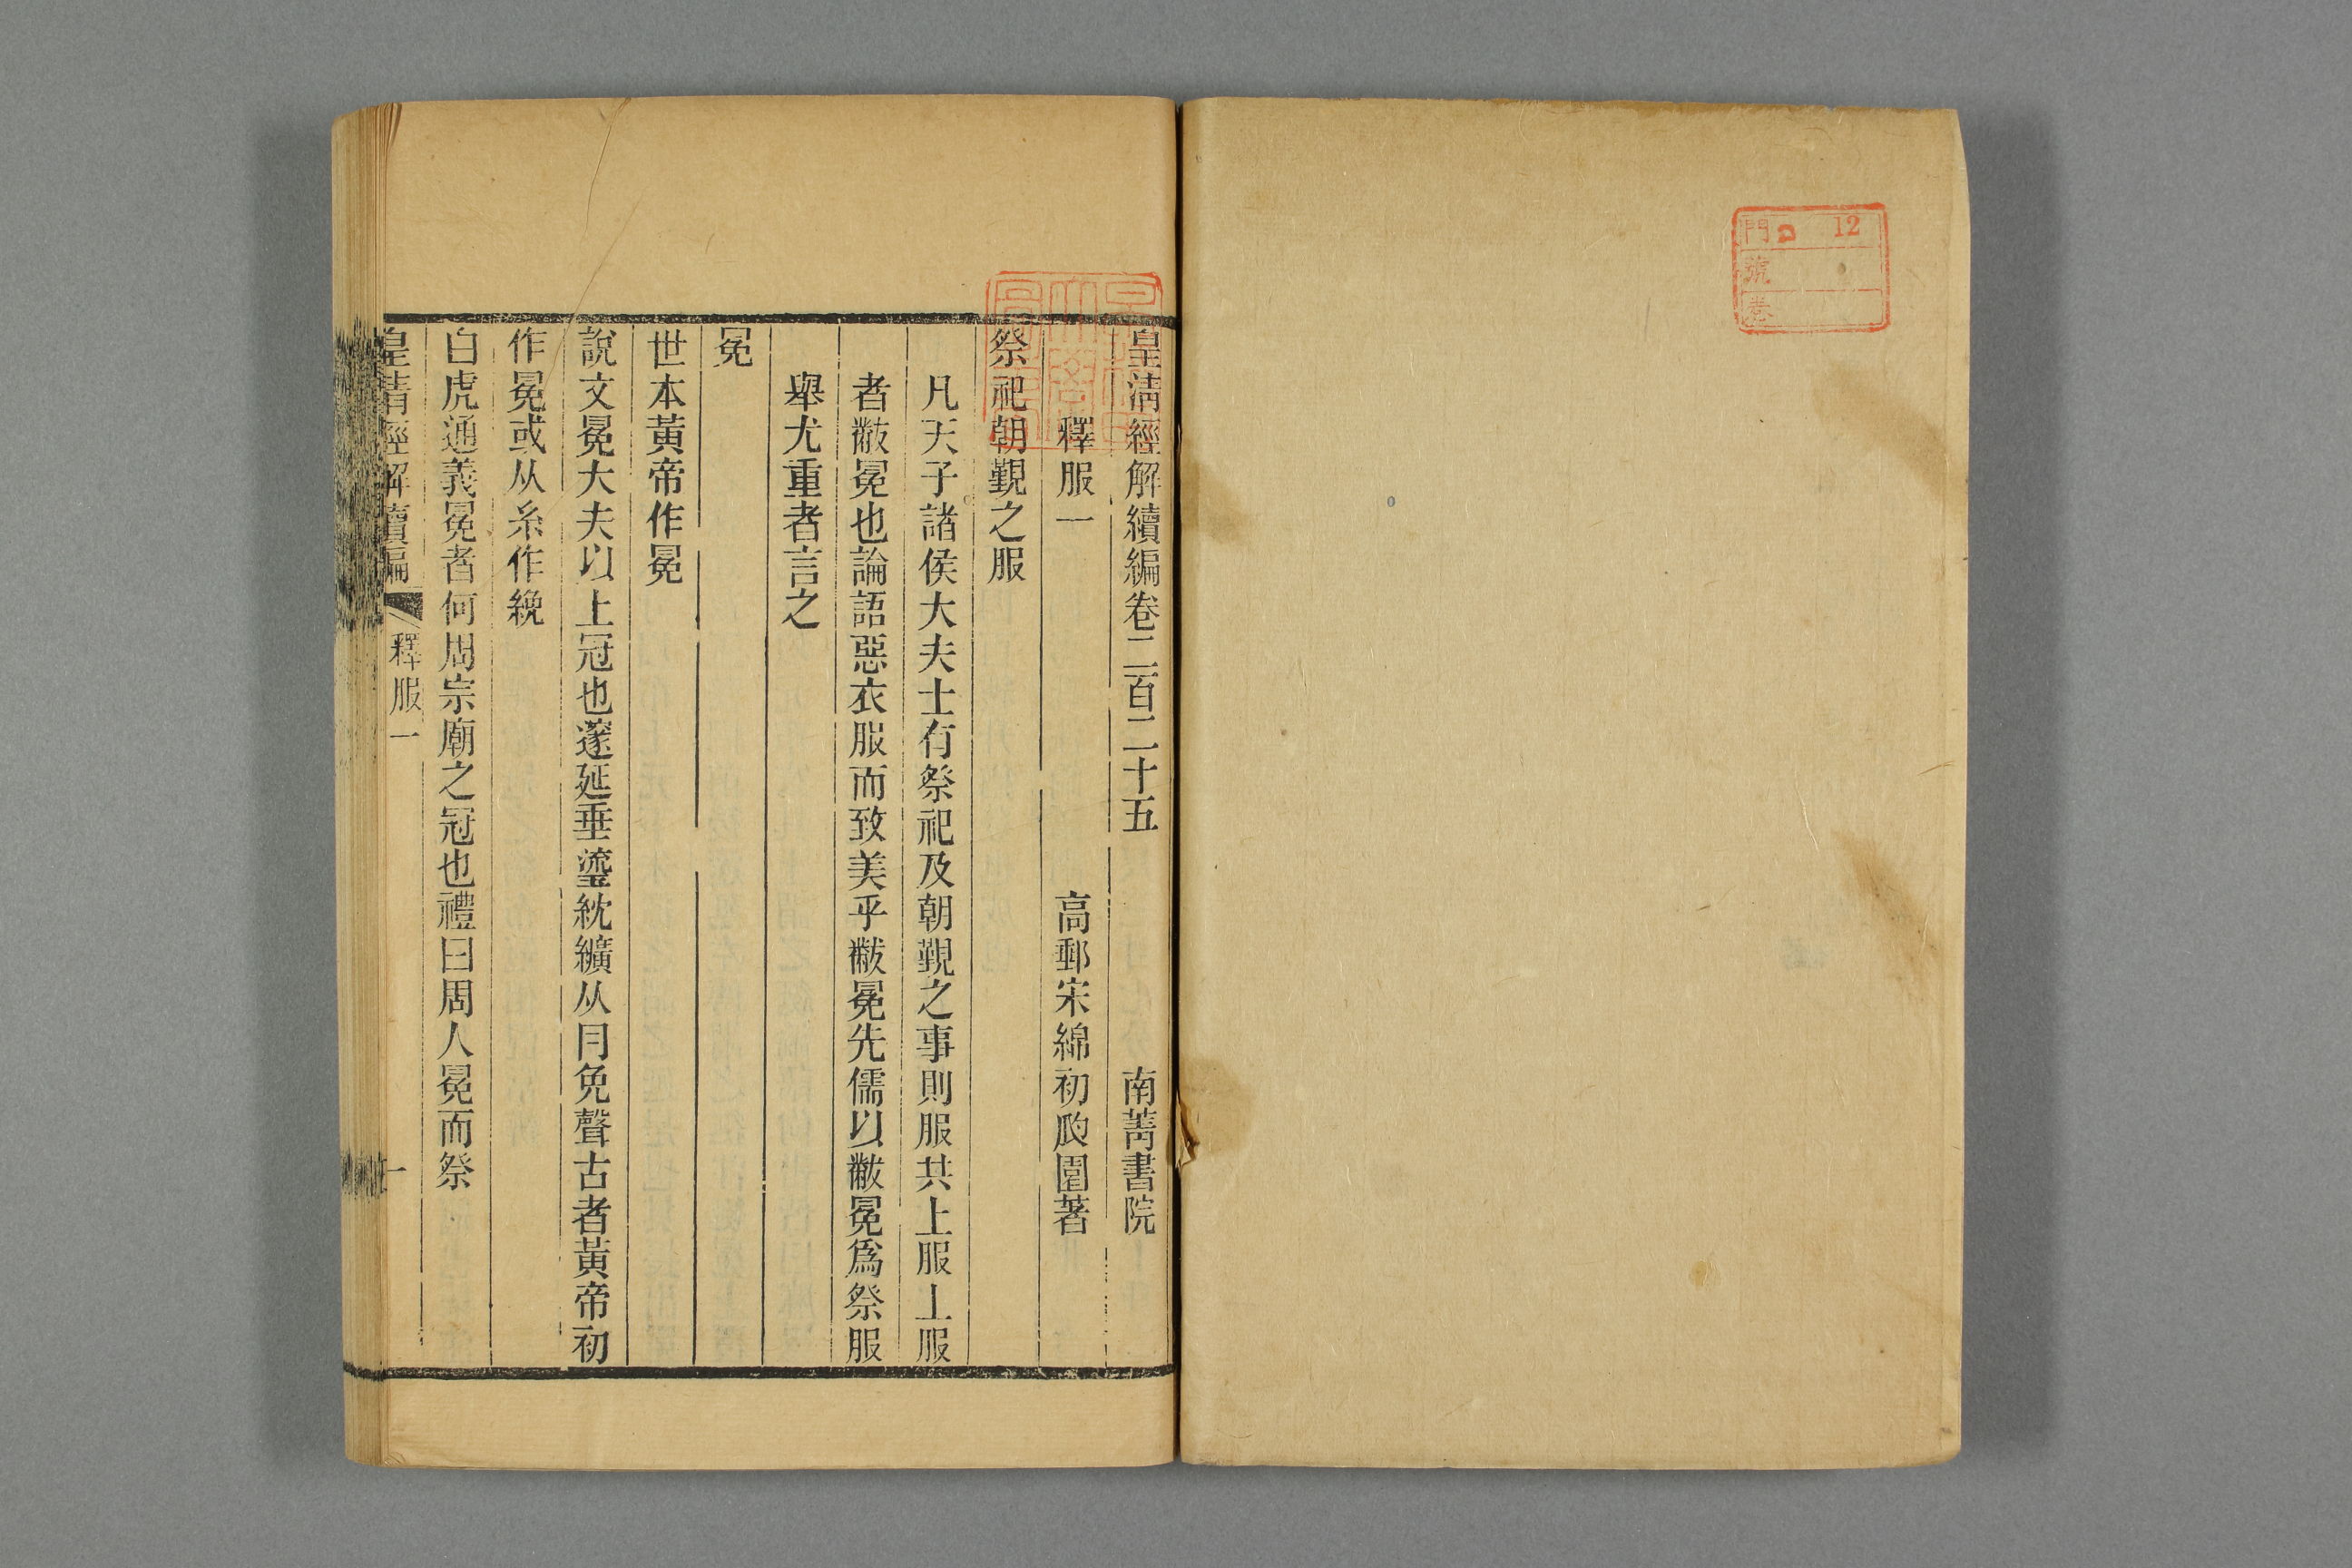 門 コ 12
號
卷
皇清經解續編卷二百二十五 南菁書院
釋服一 高郵宋綿初㼌園著
祭祀朝覲之服
凡天子諸侯大夫士有祭祀及朝覲之事則服共上服上服
者黻冕也論語惡衣服而致美乎黻冕先儒以黻冕爲祭服
舉尤重者言之
冕
世本黃帝作冕
說文冕大夫以上冠也邃延垂瑬紞纊从冃免聲古者黃帝初
作冕或从糸作絻
白虎通義冕者何周宗廟之冠也禮曰周人冕而祭
皇清經解續編 釋服一 一